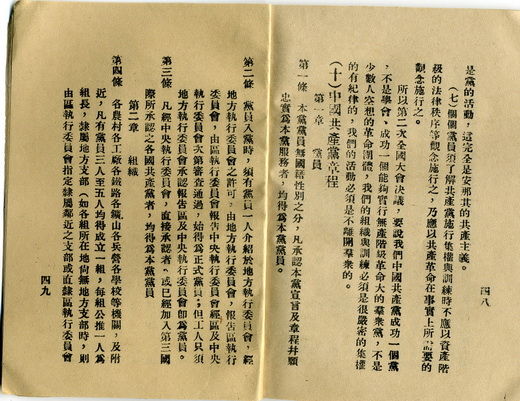 四八
是黨的活動，這完全是安那其的共產主義。
(七)個個黨員須了解共產黨施行集權與訓練時不應以資產階
級的法律秩序等觀念施行之，乃應以共產革命在事實上所需要的
觀念施行之。
所以第二次全國大會決議，要說我們中國共產黨成功一個黨
，不是學會，成功一個能夠實行無產階級革命大的羣衆黨，不是
少數人空想的革命團體，我們的組織與訓練必須是很嚴密的集權
的有紀律的，我們的活動必須是不離開羣衆的。
(十)中國共產黨章程
第一章 黨員
第一條 本黨黨員無國籍性別之分，凡承認本黨宣言及章程幷願
忠實爲本黨服務者，均得爲本黨黨員。
第二條 黨員入黨時，須有黨員一人介紹於地方執行委員會，經
地方執行委員會之許可，由地方執行委員會，報告區執行
委員會，由區執行委員會報告中央執行委員會經區及中央
執行委員會次第審查通過，始得爲正式黨員；但工人只須
地方執行委員會承認報告區及中央執行委員會卽爲黨員。
第三條 凡經中央執行委員會，直接承認者，或已經加入第三國
際所承認之各國共產黨者，均得爲本黨黨員
第二章 組織
第四條 各農村各工廠各鐵路各鑛山各兵營各學校等機關，及附
近，凡有黨員三人至五人均得成立一組，每組公推一人爲
組長，隸屬地方支部（如各組所在地尙無地方支部時，則
由區執行委員會指定隸屬鄰近之支部或直隸區執行委員會
四九